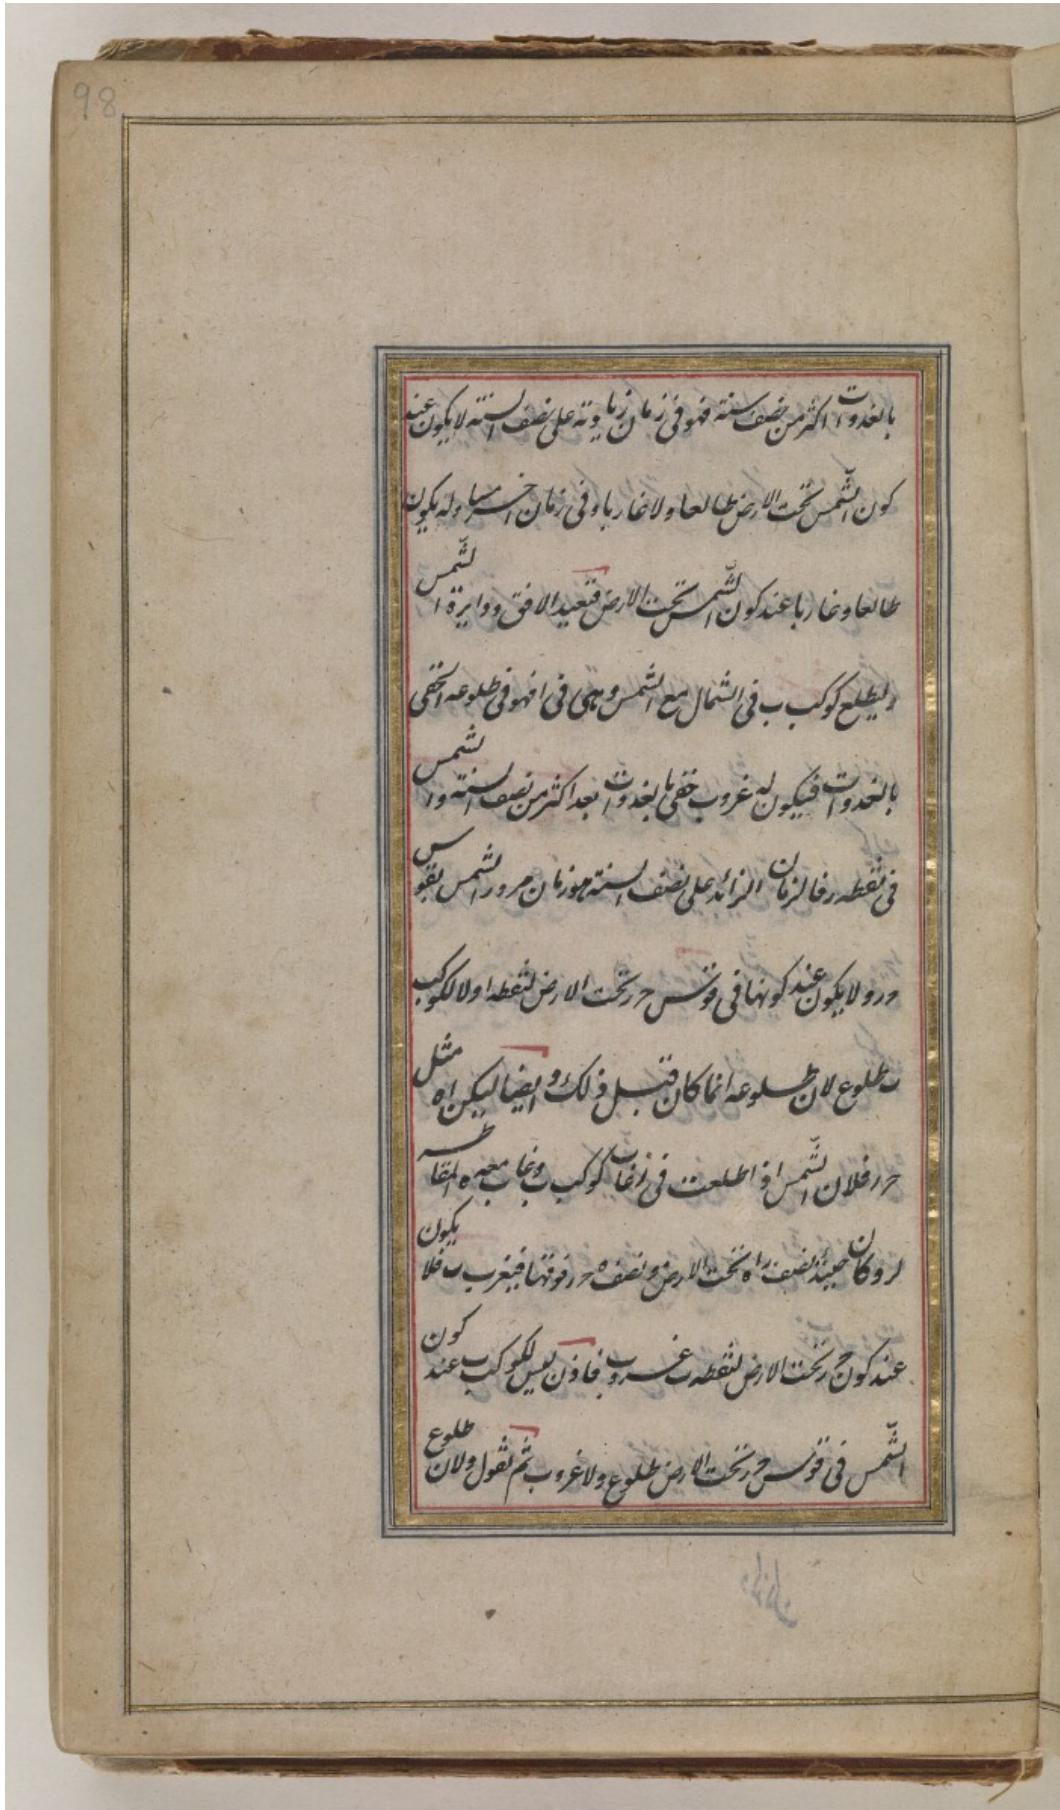 98
بالغدوات اكثر من نصف سنة فهو فى زمان زيادته على نصف السنة لا يكون عند
كون الشمس تحت الارض طالعا ولا غاربا وفى زمان اخر مساو له يكون
طالعا وغاربا عند كون الشمس تحت الارض فنعيد الافق ودايرة الشمس
وليطلع كوكب ب فى الشمال مع الشمس وهى فى ا فهو فى طلوعه الخفى
بالغدوات فيكون له غروب خفى بالغدوات بعد اكثر من نصف السنة والشمس
فى نقطه ر فالزمان الزائد على نصف السنة هو زمان مرور الشمس بقوس
ه ر ولا يكون عند كونها فى قوس ح ر تحت الارض لنقطه ا ولا لكوكب
ب طلوع لان طلوعه انما كان قبل ذلك وايضا ليكن ا ه مثل
ح ر فلان الشمس اذا طلعت فى ر غاب كوكب ب وغاب معه ه المقاطر
لر وكان حينئذ نصف ر ا ه تحت الارض ونصف ه ح ر فوقها فيغرب ب فلا يكون
عند كون ح ر تحت الارض لنقطه ب غروب فاذن ليس لكوكب ب عند كون
الشمس فى قوس ح ر تحت الارض طلوع ولا غروب ثم نقول ولان طلوع